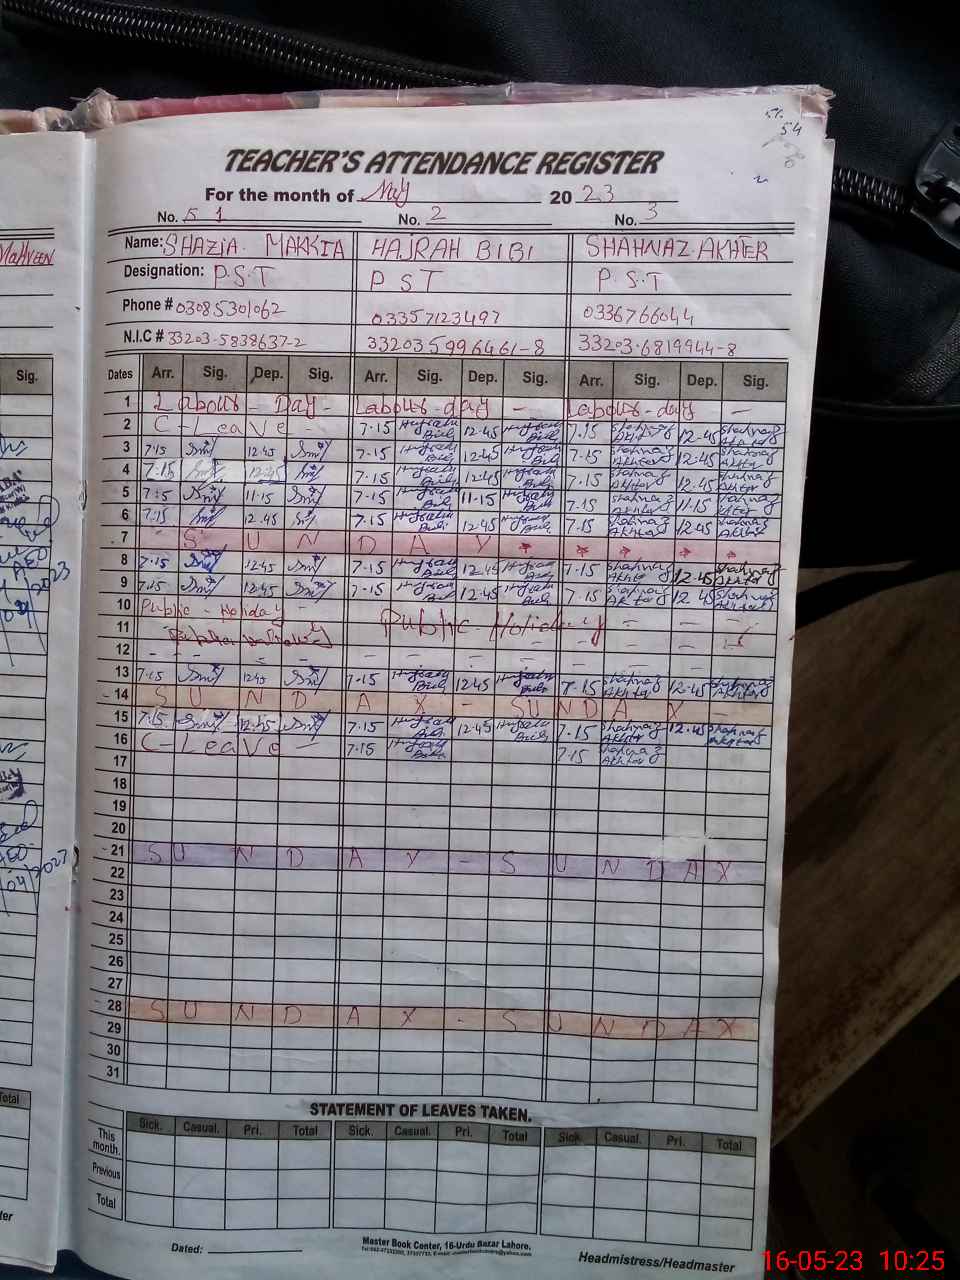 54
TEACHER'S ATTENDANCE REGISTER
For the month of May 2023
No. 1 No. 2 No. 3
MAHVEEN
Name: SHAZIA. MAKKIA HAJRAH BIBI SHAHNAZ. AKHTER
Designation: P.S.T P S T P.S.T
Phone # 03085301062 03357123497 0336766044
N.I.C # 33203-5838637-2 332035996461-8 33203-6819944-8
Sig. Dates Arr. Sig. Dep. Sig. Arr. Sig. Dep. Sig. Arr. Sig. Dep. Sig.
1 Labour - Day - Labour - day - Labour - day -
2 C-Leave - 7.15 12.45 7.15 Shahnaz Akhter 12.45 Shahnaz Akhter
3 7.15 12.45 7.15 12.45 7.15 Shahnaz Akhter 12.45 Shahnaz Akhter
4 7.15 12.45 7.15 12.45 7.15 Shahnaz Akhter 12.45 Shahnaz Akhter
5 7.15 11.15 7.15 11.15 7.15 Shahnaz Akhter 11.15 Shahnaz Akhter
6 7.15 12.45 7.15 12.45 7.15 Shahnaz Akhter 12.45 Shahnaz Akhter
7 S U N D A Y
8 7.15 12.45 7.15 12.45 7.15 Shahnaz Akhter 12.45 Shahnaz Akhter
9 7.15 12.45 7.15 12.45 7.15 Shahnaz Akhter 12.45 Shahnaz Akhter
10 Public - Holiday - Public Holiday
11
12
13 7.15 12.45 7.15 12.45 7.15 Shahnaz Akhter 12.45 Shahnaz Akhter
14 S U N D A Y - S U N D A Y -
15 7.15 12.45 7.15 12.45 7.15 Shahnaz Akhter 12.45 Shahnaz Akhter
16 C-Leave - 7.15 7.15 Shahnaz Akhter
17
18
19
20
21 S U N D A Y - S U N D A Y
22
23
24
25
26
27
28 S U N D A Y - S U N D A Y
29
30
31
STATEMENT OF LEAVES TAKEN.
Total Sick. Casual. Pri. Total Sick. Casual. Pri. Total Sick. Casual. Pri. Total
This month.
Previous
Total
Dated:
Master Book Center, 16-Urdu Bazar Lahore.
Headmistress/Headmaster
16-05-23 10:25